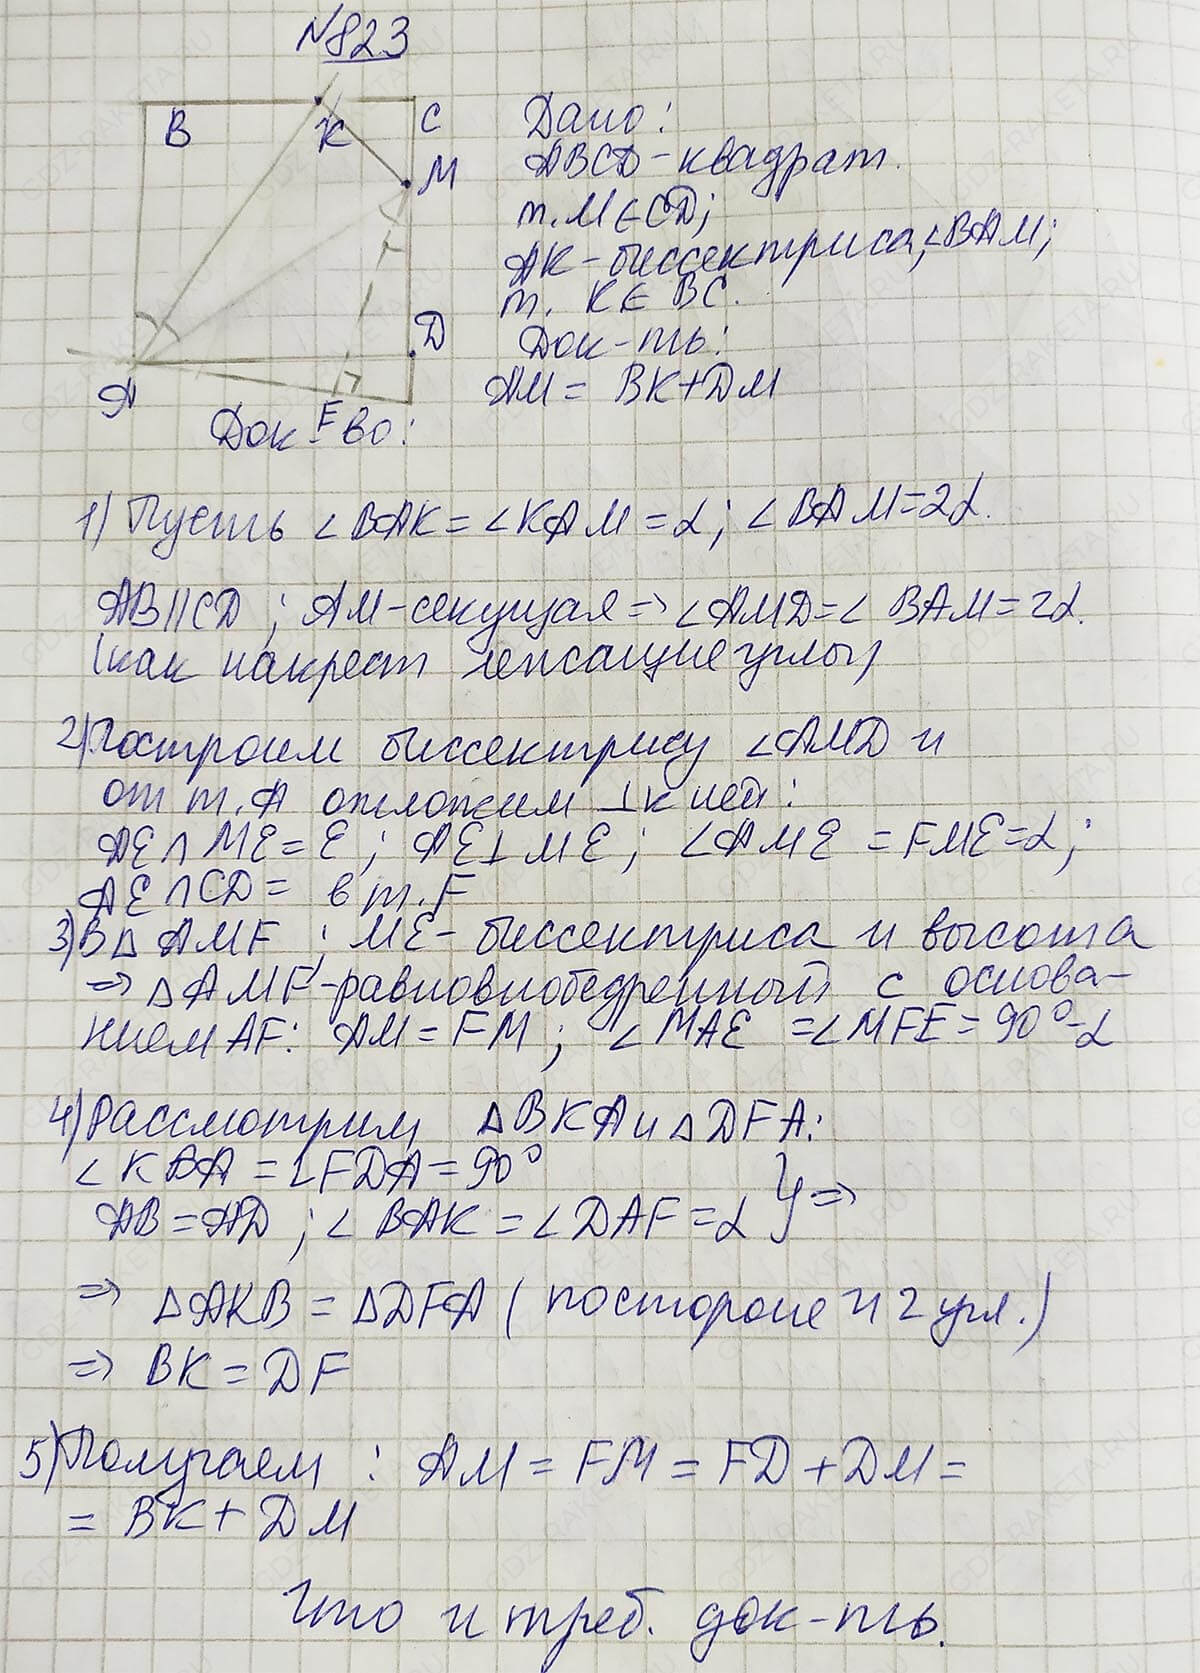 №823
B
K
C
M
D
A
F
Дано:
ABCD-квадрат.
т. M∈CD;
AK-биссектриса, ∠BAM;
т. K∈BC.
Док-ть:
AM = BK+DM
Док-во:
1) Пусть ∠BAK=∠KAM=α; ∠BAM=2α.
AB||CD; AM-секущая => ∠AMD=∠BAM=2α.
(как накрест лежащие углы)
2) Построим биссектрису ∠AMD и
от т. A отложим ⊥ к ней:
AE∩ME=E; AE⊥ME; ∠AME = FME=α;
AE∩CD= в т. F
3) В △AMF; ME-биссектриса и высота
=> △AMF-равнобедренный с основа-
нием AF: AM=FM; ∠MAE =∠MFE=90°-α
4) Рассмотрим △BKA и △DFA:
∠KBA=∠FDA=90°
AB=AD; ∠BAK=∠DAF=α } =>
=> △AKB=△DFA (по стороне и 2 угл.)
=> BK=DF
5) Получаем: AM=FM=FD+DM=
= BK+DM
Что и треб. док-ть.